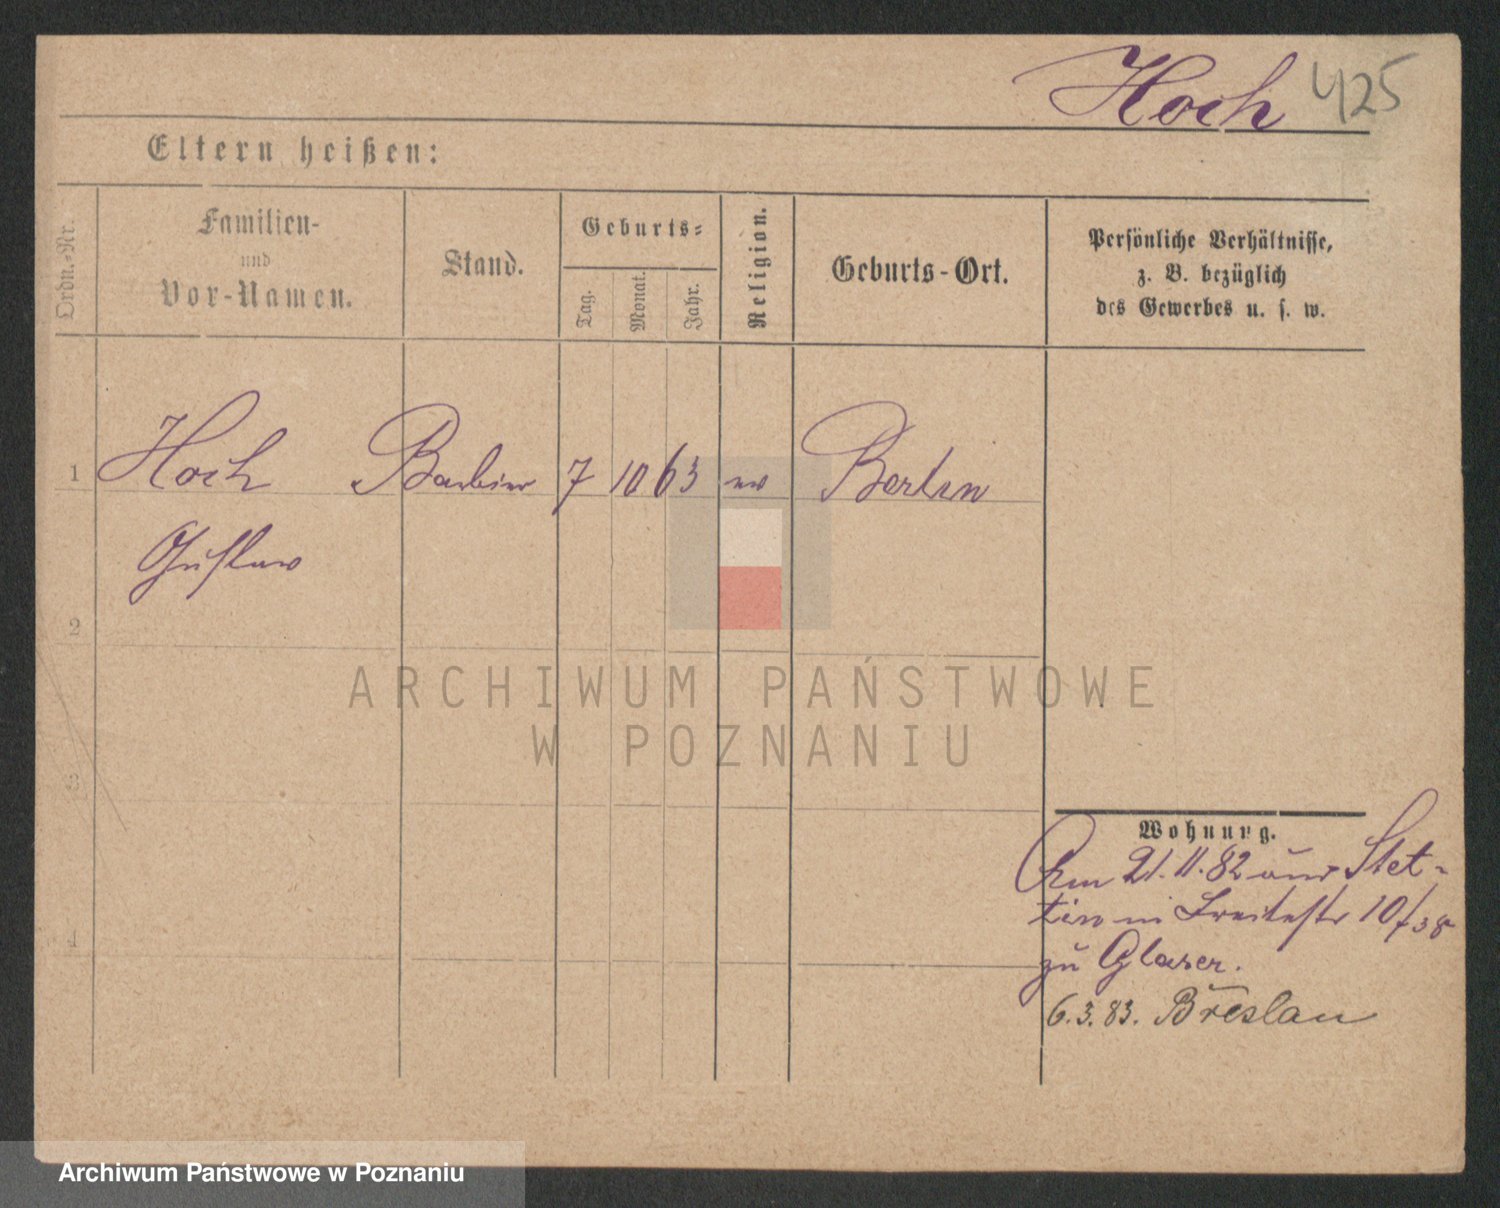 Hoch 425
Eltern heißen:
Ordn.-Nr.
Familien-
und
Vor-Namen.
Stand.
Geburts-
Tag.
Monat.
Jahr.
Religion.
Geburts-Ort.
Persönliche Verhältnisse,
z. B. bezüglich
des Gewerbes u. s. w.
1 Hoch Barbier 7 10 63 ev Berlin
Gustav
2
3
4
ARCHIWUM PAŃSTWOWE
W POZNANIU
Wohnung.
Am 21.11.82 aus Stet-
tin in Breitestr 10/38
zu Glaser.
6.3.83. Breslau
Archiwum Państwowe w Poznaniu